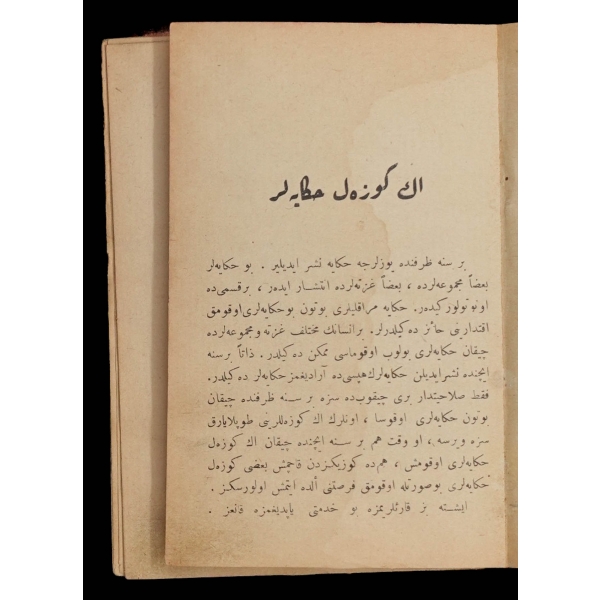 اك كوزەل حكايەلر
بر سنه ظرفنده يوزلرجه حكايه نشر ايديلير . بو حكايەلر
بعضاً مجموعەلرده ، بعضاً غزتەلرده انتشار ايدەر ، برقسمى ده
اونوتولور كيدەر. حكايه مراقليلرى بوتون بو حكايەلرى اوقومق
اقتدارينى حائز دەكيلدرلر. برانسانك مختلف غزته و مجموعەلرده
چيقان حكايەلرى بولوب اوقوماسى ممكن دەكيلدر. ذاتاً برسنه
ايچنده نشر ايديلن حكايەلرك هپسى ده آراديغمز حكايەلر دەكيلدر.
فقط صلاحيتدار برى چيقوب ده سزه بر سنه ظرفنده چيقان
بوتون حكايەلرى اوقوسا ، اونلرك اك كوزەللرينى طوپلايارق
سزه ويرسه ، او وقت هم بر سنه ايچنده چيقان اك كوزەل
حكايەلرى اوقومش ، هم ده كوزيكزدن قاچمش بعضى كوزەل
حكايەلرى بوصورتله اوقومق فرصتنى ألده ايتمش اولورسكز .
ايشته بز قارئلريمزه بو خدمتى ياپديغمزه قانعز .